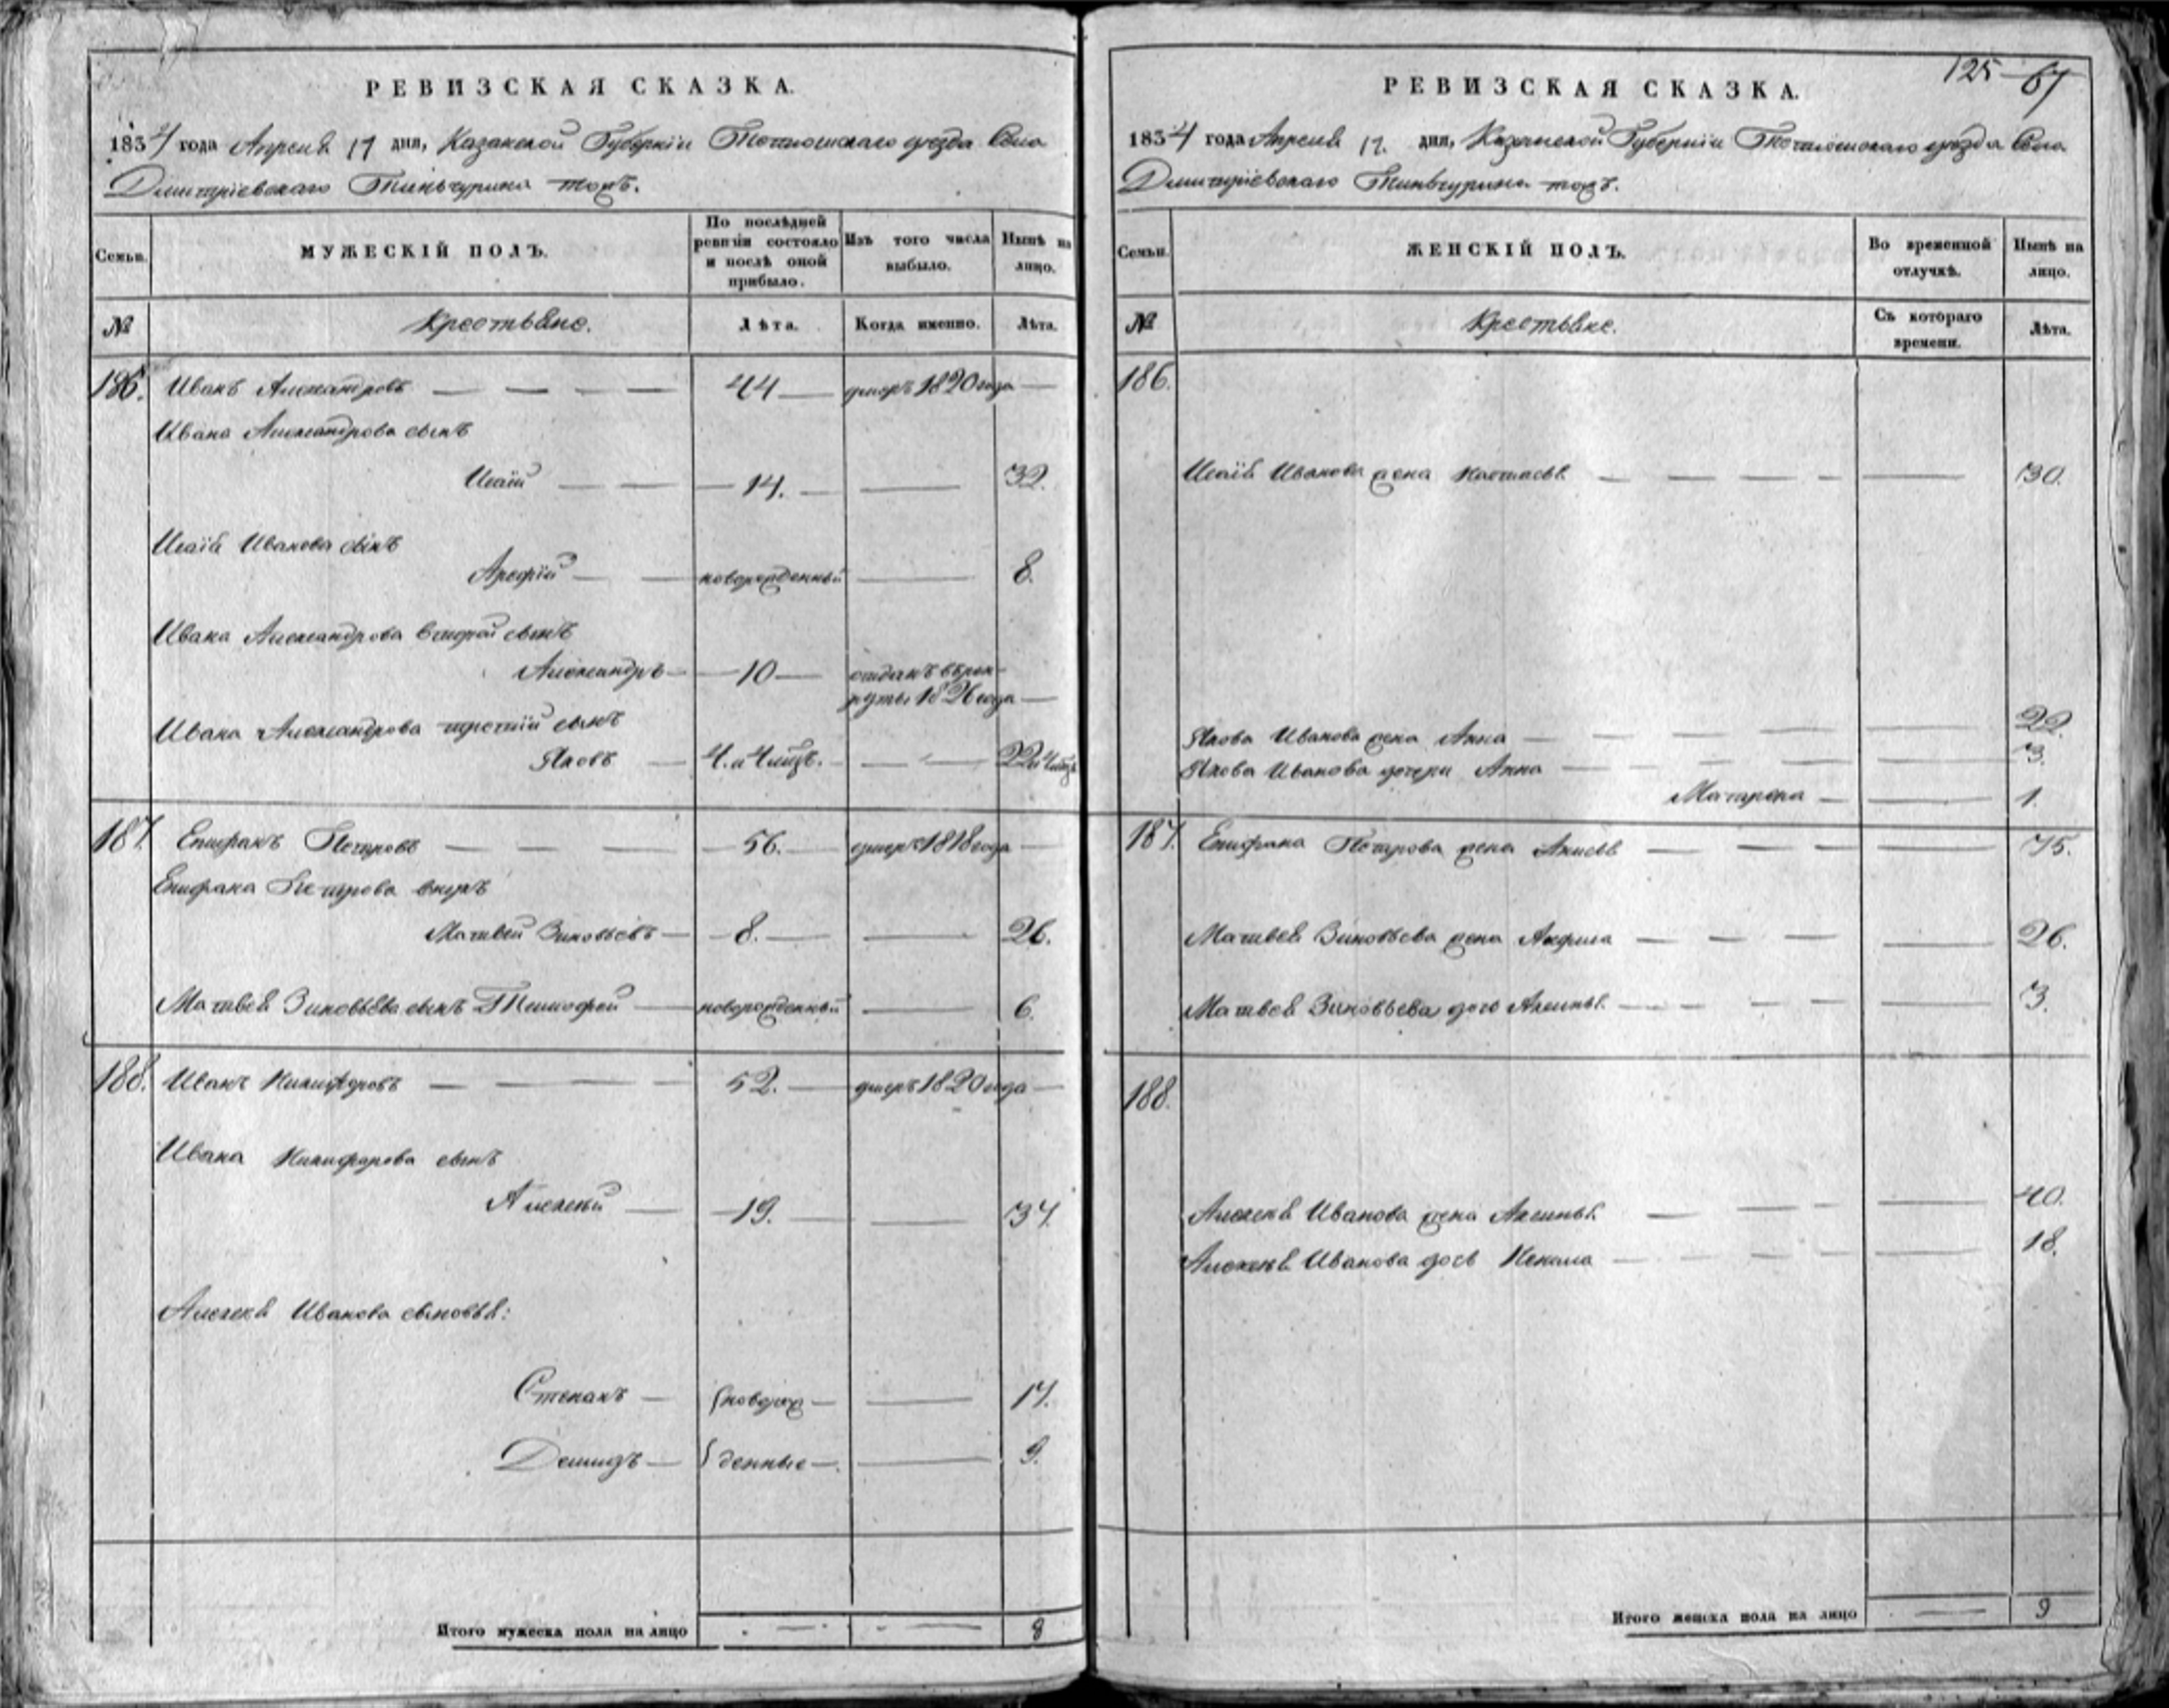 РЕВИЗСКАЯ СКАЗКА.
1834 года Апреля 17 дня, Казанской Губернiи Тетюшскаго уезда Села
Димитрiевскаго Тиньчурина тожъ.
Семьи.
МУЖЕСКIЙ ПОЛЪ.
По послѣдней ревизiи состояло и послѣ оной прибыло.
Изъ того числа выбыло.
Нынѣ на лицо.
№
Крестьяне.
Лѣта.
Когда именно.
Лѣта.
186. Иванъ Александровъ — 44 — умеръ 1820 года —
Ивана Александрова сынъ
Исаiй — 14. — 32.
Исаiя Иванова сынъ
Арефiй — новорожденный — 8.
Ивана Александрова второй сынъ
Александръ — 10 — отданъ в рек-
руты 1826 года —
Ивана Александрова третiй сынъ
Яковъ — 4. и 4 мѣсц. — 22
187. Епифанъ Петровъ — 56. — умеръ 1818 года —
Епифана Петрова внукъ
Матвей Зиновьевъ — 8. — 26.
Матвея Зиновьева сынъ Тимофей — новорожденный — 6.
188. Иванъ Никифоровъ — 52. — умеръ 1820 года —
Ивана Никифорова сынъ
Алексей — 19. — 37.
Алексея Иванова сыновья:
Степанъ — новорож — 17.
Демидъ — денные — 9.
Итого мужеска пола на лицо — — 8
125 — 67
РЕВИЗСКАЯ СКАЗКА.
1834 года Апреля 17. дня, Казанской Губернiи Тетюшскаго уезда Села
Димитрiевскаго Тиньчурина тожъ.
Семьи.
ЖЕНСКIЙ ПОЛЪ.
Во временной отлучкѣ.
Нынѣ на лицо.
№
Крестьяне.
Съ котораго времени.
Лѣта.
186.
Исаiя Иванова жена Настасья — 30.
Якова Иванова жена Анна — 22.
Якова Иванова дочери Анна — 3.
Матрена — 1.
187. Епифана Петрова жена Анисья — 75.
Матвея Зиновьева жена — 26.
Матвея Зиновьева дочь Аксинья — 3.
188.
Алексея Иванова жена Аксинья — 40.
Алексея Иванова дочь Ненила — 18.
Итого женска пола на лицо — 9